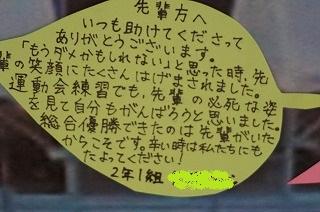 先輩方へ
いつも助けてくださって
ありがとうございます。
「もうダメかもしれない」と思った時、先
輩の笑顔にたくさんはげまされました。
運動会練習でも、先輩の必死な姿
を見て自分もがんばろうと思いました。
総合優勝できたのは先輩がいた
からこそです。辛い時は私たちにも
たよってください!
2年1組